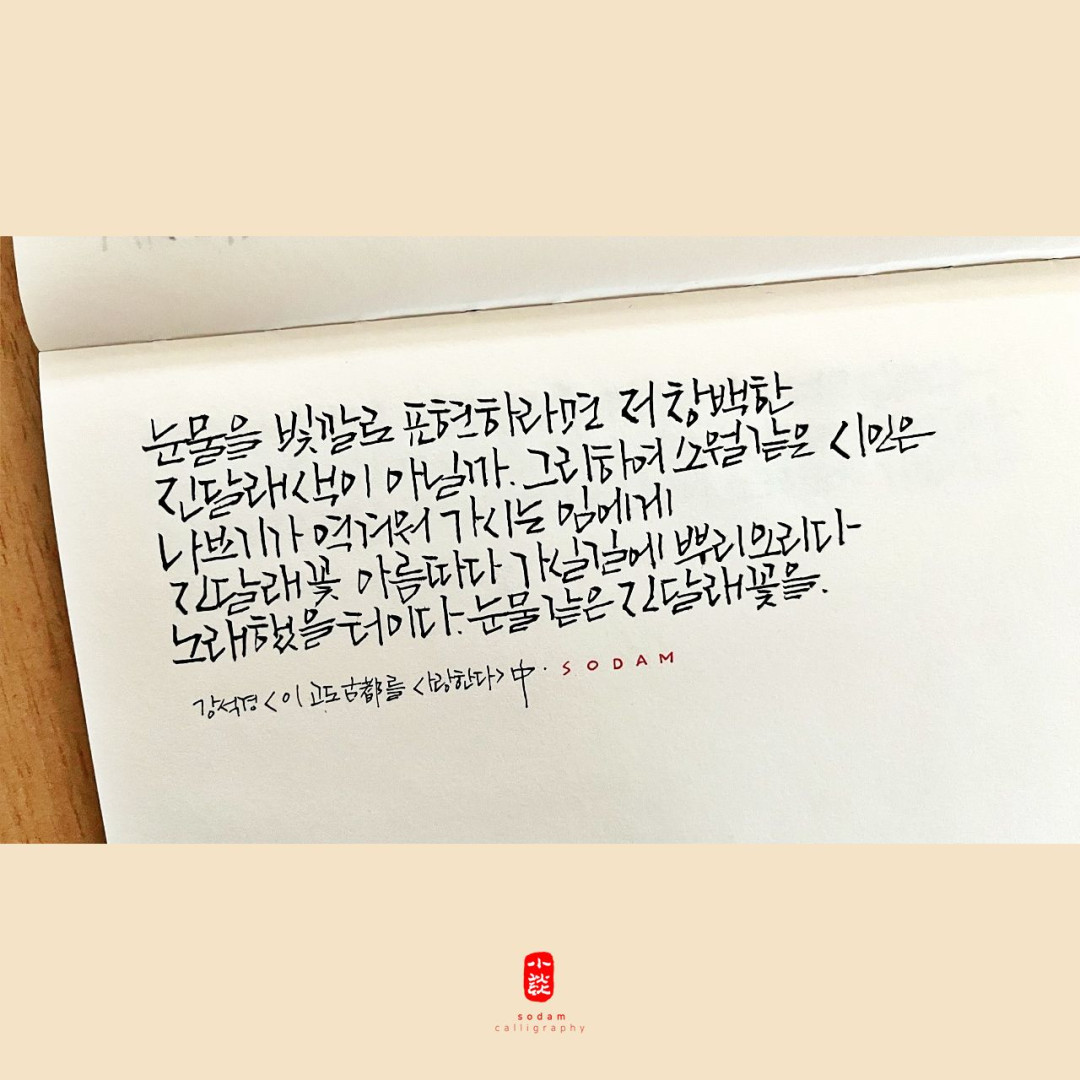 눈물을 빛깔로 표현하라면 저 창백한
진달래색이 아닐까. 그리하여 소월같은 시인은
나쁘기가 역겨워 가시는 임에게
진달래꽃 아름따다 가실길에 뿌리오리다
노래했을 터이다. 눈물같은 진달래꽃을.
강석경 <이 고도古都를 사랑한다> 中. SODAM
小談
sodam
calligraphy